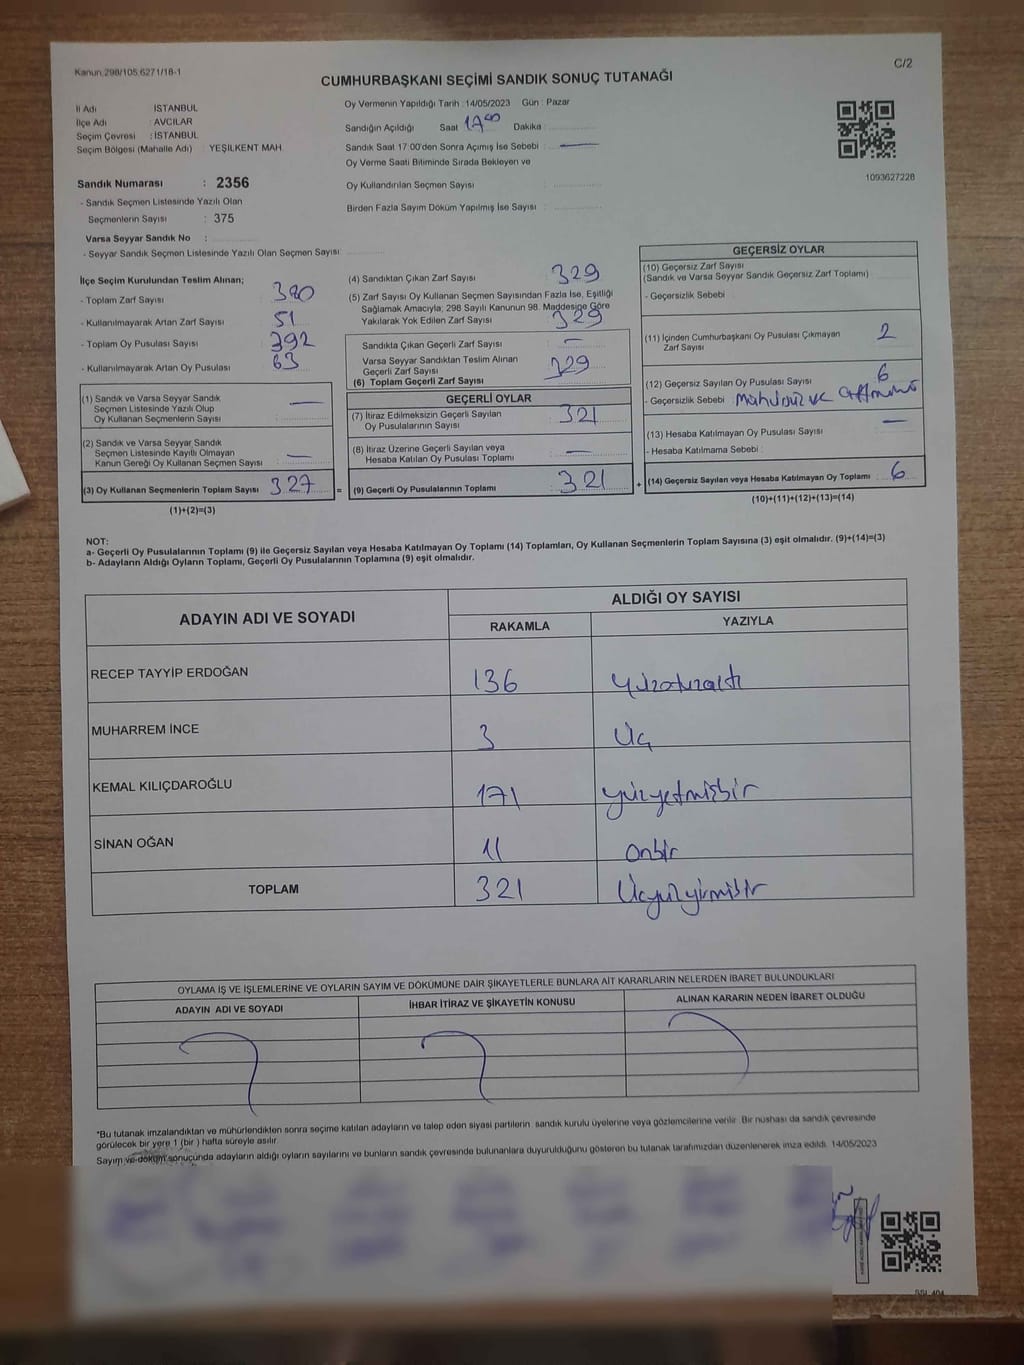 Kanun:298/105,6271/18-1
C/2
CUMHURBAŞKANI SEÇİMİ SANDIK SONUÇ TUTANAĞI
İl Adı : İSTANBUL
İlçe Adı : AVCILAR
Seçim Çevresi : İSTANBUL
Seçim Bölgesi (Mahalle Adı) : YEŞİLKENT MAH.
Sandık Numarası : 2356
- Sandık Seçmen Listesinde Yazılı Olan
Seçmenlerin Sayısı : 375
Varsa Seyyar Sandık No :
- Seyyar Sandık Seçmen Listesinde Yazılı Olan Seçmen Sayısı:
Oy Vermenin Yapıldığı Tarih :14/05/2023 Gün : Pazar
Sandığın Açıldığı Saat 17 00 Dakika :
Sandık Saat 17:00'den Sonra Açımış İse Sebebi : —
Oy Verme Saati Bitiminde Sırada Bekleyen ve
Oy Kullandırılan Seçmen Sayısı :
Birden Fazla Sayım Döküm Yapılmış İse Sayısı :
1093627228
İlçe Seçim Kurulundan Teslim Alınan;
- Toplam Zarf Sayısı : 380
- Kullanılmayarak Artan Zarf Sayısı : 51
- Toplam Oy Pusulası Sayısı : 392
- Kullanılmayarak Artan Oy Pusulası : 63
(1) Sandık ve Varsa Seyyar Sandık —
Seçmen Listesinde Yazılı Olup
Oy Kullanan Seçmenlerin Sayısı :
(2) Sandık ve Varsa Seyyar Sandık
Seçmen Listesinde Kayıtlı Olmayan
Kanun Gereği Oy Kullanan Seçmen Sayısı : —
(3) Oy Kullanan Seçmenlerin Toplam Sayısı : 327 =
(1)+(2)=(3)
(4) Sandıktan Çıkan Zarf Sayısı : 329
(5) Zarf Sayısı Oy Kullanan Seçmen Sayısından Fazla İse, Eşitliği
Sağlamak Amacıyla; 298 Sayılı Kanunun 98. Maddesine Göre
Yakılarak Yok Edilen Zarf Sayısı : 329
Sandıkta Çıkan Geçerli Zarf Sayısı : —
Varsa Seyyar Sandıktan Teslim Alınan
Geçerli Zarf Sayısı : 329
(6) Toplam Geçerli Zarf Sayısı :
GEÇERLİ OYLAR
(7) İtiraz Edilmeksizin Geçerli Sayılan
Oy Pusulalarının Sayısı : 321
(8) İtiraz Üzerine Geçerli Sayılan veya
Hesaba Katılan Oy Pusulası Toplamı : —
(9) Geçerli Oy Pusulalarının Toplamı : 321 +
GEÇERSİZ OYLAR
(10) Geçersiz Zarf Sayısı
(Sandık ve Varsa Seyyar Sandık Geçersiz Zarf Toplamı) :
- Geçersizlik Sebebi :
(11) İçinden Cumhurbaşkanı Oy Pusulası Çıkmayan
Zarf Sayısı : 2
(12) Geçersiz Sayılan Oy Pusulası Sayısı : 6
- Geçersizlik Sebebi : Mühürsüz ve
(13) Hesaba Katılmayan Oy Pusulası Sayısı : —
- Hesaba Katılmama Sebebi :
(14) Geçersiz Sayılan veya Hesaba Katılmayan Oy Toplamı : 6
(10)+(11)+(12)+(13)=(14)
NOT:
a- Geçerli Oy Pusulalarının Toplamı (9) ile Geçersiz Sayılan veya Hesaba Katılmayan Oy Toplamı (14) Toplamları, Oy Kullanan Seçmenlerin Toplam Sayısına (3) eşit olmalıdır. (9)+(14)=(3)
b- Adayların Aldığı Oyların Toplamı, Geçerli Oy Pusulalarının Toplamına (9) eşit olmalıdır.
ADAYIN ADI VE SOYADI
ALDIĞI OY SAYISI
RAKAMLA
YAZIYLA
RECEP TAYYİP ERDOĞAN 136 Yüzotuzaltı
MUHARREM İNCE 3 Üç
KEMAL KILIÇDAROĞLU 171 yüzyetmişbir
SİNAN OĞAN 11 onbir
TOPLAM 321 Üçyüzyirmibir
OYLAMA İŞ VE İŞLEMLERİNE VE OYLARIN SAYIM VE DÖKÜMÜNE DAİR ŞİKAYETLERLE BUNLARA AİT KARARLARIN NELERDEN İBARET BULUNDUKLARI
ADAYIN ADI VE SOYADI
İHBAR İTİRAZ VE ŞİKAYETİN KONUSU
ALINAN KARARIN NEDEN İBARET OLDUĞU
*Bu tutanak imzalandıktan ve mühürlendikten sonra seçime katılan adayların ve talep eden siyasi partilerin sandık kurulu üyelerine veya gözlemcilerine verilir. Bir nushası da sandık çevresinde
görülecek bir yere 1 (bir ) hafta süreyle asılır.
Sayım ve döküm sonucunda adayların aldığı oyların sayılarını ve bunların sandık çevresinde bulunanlara duyurulduğunu gösteren bu tutanak tarafımızdan düzenlenerek imza edildi. 14/05/2023